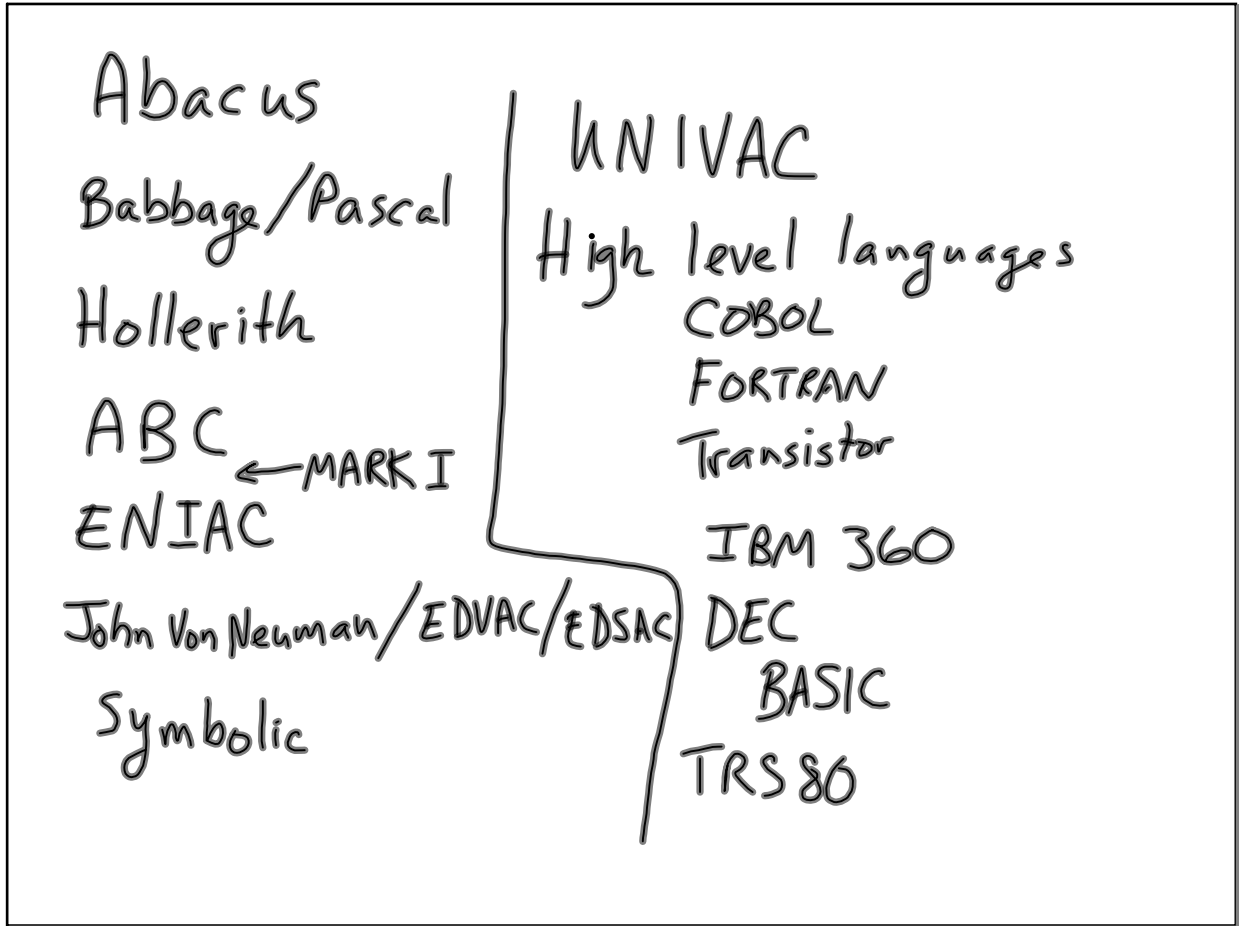 Abacus
Babbage/Pascal
Hollerith
ABC
←MARK I
ENIAC
John Von Neuman/EDVAC/EDSAC
Symbolic
UNIVAC
High level languages
COBOL
FORTRAN
Transistor
IBM 360
DEC
BASIC
TRS80